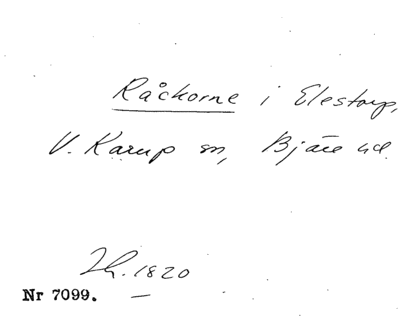 Råckorne i Elestorp,
V. Karup sn, Bjäre hd.
Lh. 1820
Nr 7099.